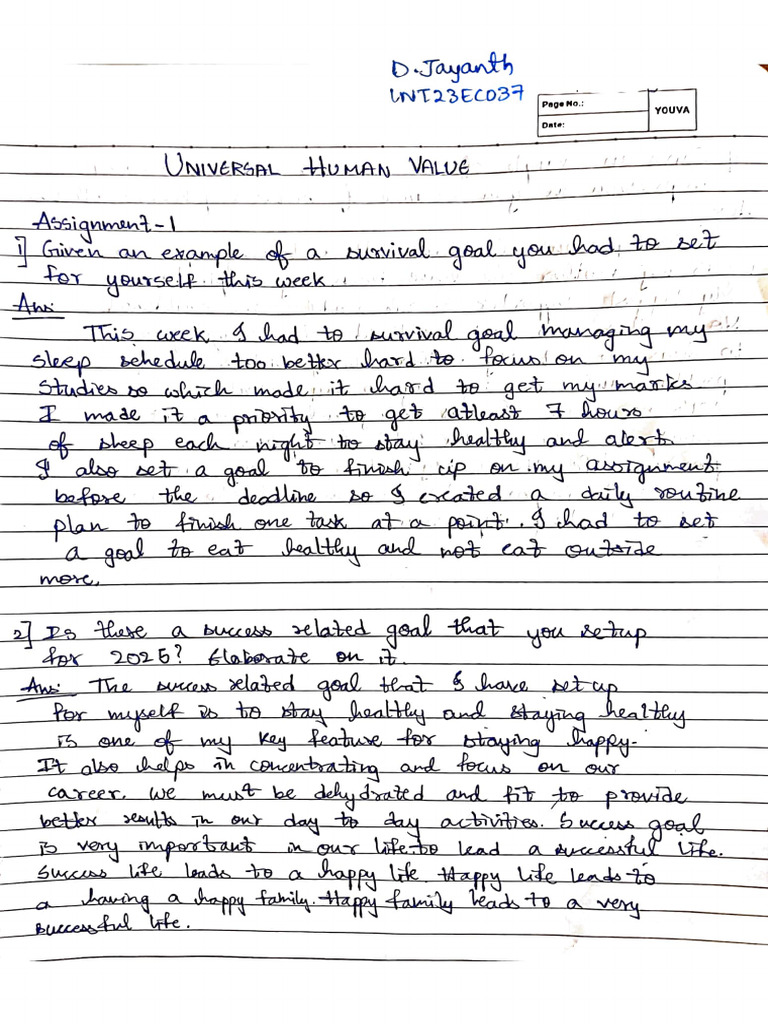 D. Jayanth
1NT23EC037
Page No.:
Date:
YOUVA
UNIVERSAL HUMAN VALUE
Assignment-1
1] Given an example of a survival goal you had to set
for yourself this week.
Ans:
This week I had to survival goal managing my
sleep schedule too better hard to focus on my
studies so which made it hard to get my marks
I made it a priority to get atleast 7 hours
of sleep each night to stay healthy and alert.
I also set a goal to finish up on my assignment
before the deadline so I created a daily routine
plan to finish one task at a point. I had to set
a goal to eat healthy and not eat outside
more.
2] Is there a success related goal that you setup
for 2025? Elaborate on it.
Ans: The success related goal that I have set up
for myself is to stay healthy and staying healthy
is one of my key feature for staying happy.
It also helps in concentrating and focus on our
career. we must be dehydrated and fit to provide
better results in our day to day activities. Success goal
is very important in our life to lead a successful life.
Success life leads to a happy life. Happy life leads to
a having a happy family. Happy family leads to a very
successful life.